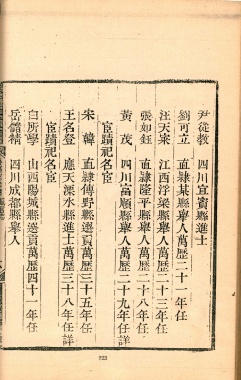 尹從教　四川宜賓縣進士
劉可立　直隸某縣舉人萬歷二十一年任
汪天宷　江西浮梁縣舉人萬歷二十三年任
張如鈺　直隸隆平縣舉人萬歷二十八年任
黃茂　四川富順縣舉人萬歷二十九年任
宦蹟祀名宦
朱韓　直隸博野縣選貢萬歷三十五年任
王名登　應天溧水縣進士萬歷三十八年任詳
宦蹟祀名宦
白所學　山西陽城縣選貢萬歷四十一年任
岳儲精　四川成都縣舉人